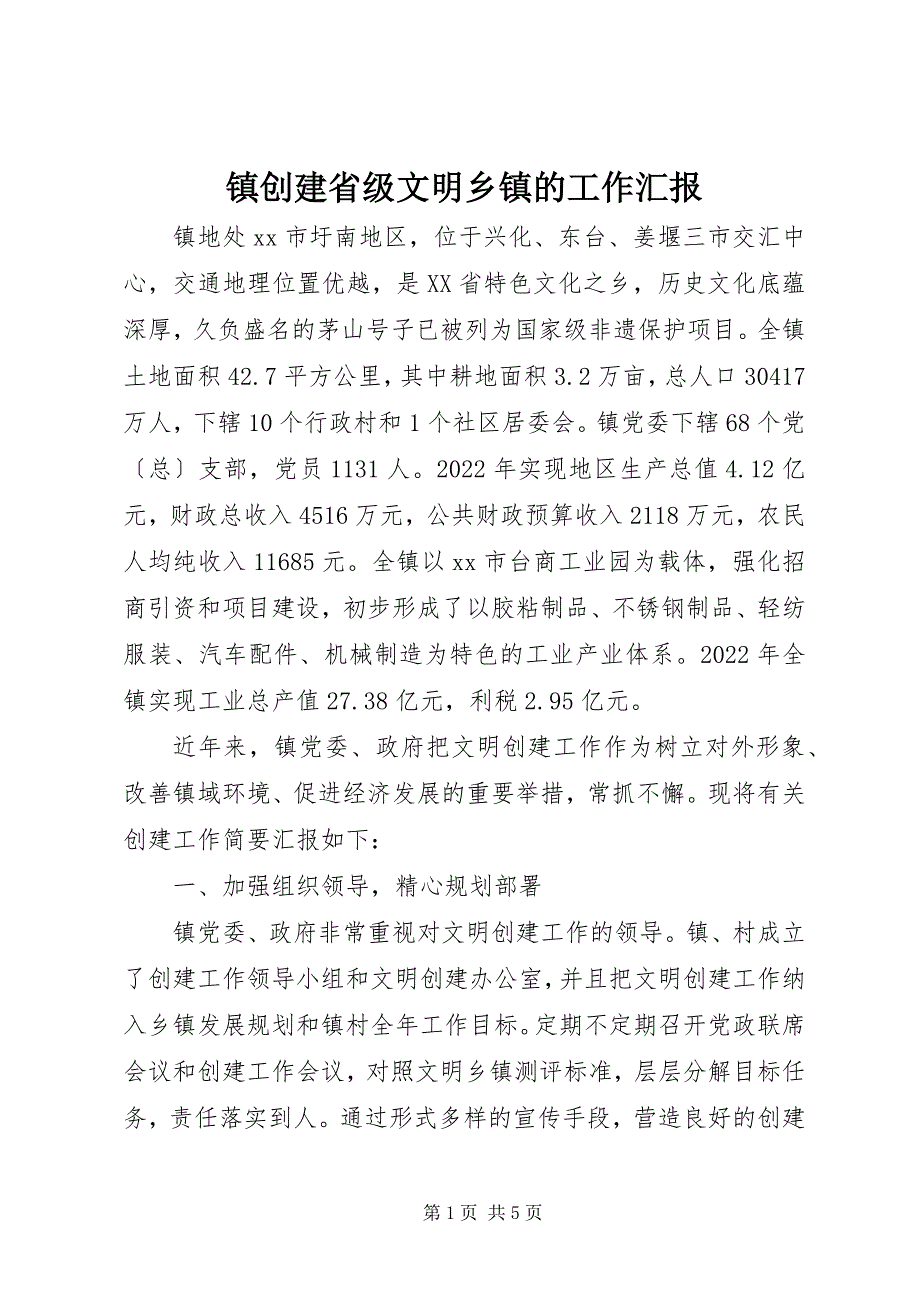 镇创建省级文明乡镇的工作汇报
镇地处 xx 市圩南地区，位于兴化、东台、姜堰三市交汇中
心，交通地理位置优越，是 XX 省特色文化之乡，历史文化底蕴
深厚，久负盛名的茅山号子已被列为国家级非遗保护项目。全镇
土地面积 42.7 平方公里，其中耕地面积 3.2 万亩，总人口 30417
万人，下辖 10 个行政村和 1 个社区居委会。镇党委下辖 68 个党
〔总〕支部，党员 1131 人。2022 年实现地区生产总值 4.12 亿
元，财政总收入 4516 万元，公共财政预算收入 2118 万元，农民
人均纯收入 11685 元。全镇以 xx 市台商工业园为载体，强化招
商引资和项目建设，初步形成了以胶粘制品、不锈钢制品、轻纺
服装、汽车配件、机械制造为特色的工业产业体系。2022 年全
镇实现工业总产值 27.38 亿元，利税 2.95 亿元。
近年来，镇党委、政府把文明创建工作作为树立对外形象、
改善镇域环境、促进经济发展的重要举措，常抓不懈。现将有关
创建工作简要汇报如下：
一、加强组织领导，精心规划部署
镇党委、政府非常重视对文明创建工作的领导。镇、村成立
了创建工作领导小组和文明创建办公室，并且把文明创建工作纳
入乡镇发展规划和镇村全年工作目标。定期不定期召开党政联席
会议和创建工作会议，对照文明乡镇测评标准，层层分解目标任
务，责任落实到人。通过形式多样的宣传手段，营造良好的创建
第 1 页 共 5 页